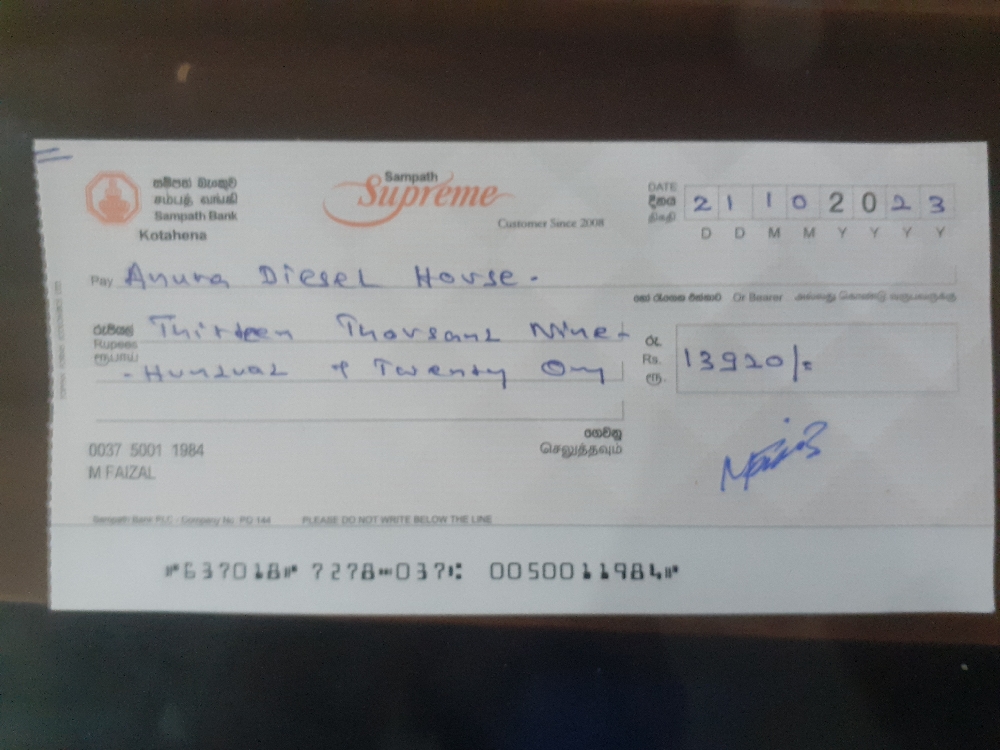 සම්පත් බැංකුව
சம்பத் வங்கி
Sampath Bank
Kotahena
Sampath
Supreme
Customer Since 2008
DATE
දිනය
திகதி
2 1 1 0 2 0 2 3
D D M M Y Y Y Y
Pay Anura Diesel House.
හෝ රැගෙන එන්නාට Or Bearer அல்லது கொண்டு வருபவருக்கு
රුපියල්
Rupees
ரூபாய்
Thirteen Thousand Nine
- Hundred & Twenty Only
රු.
Rs.
ரூ.
13920/=
ගෙවනු
செலுத்தவும்
0037 5001 1984
M FAIZAL
Sampath Bank PLC - Company No. PQ 144 PLEASE DO NOT WRITE BELOW THE LINE
⑈637018⑈ 7278⑉037⑆ 0050011984⑈